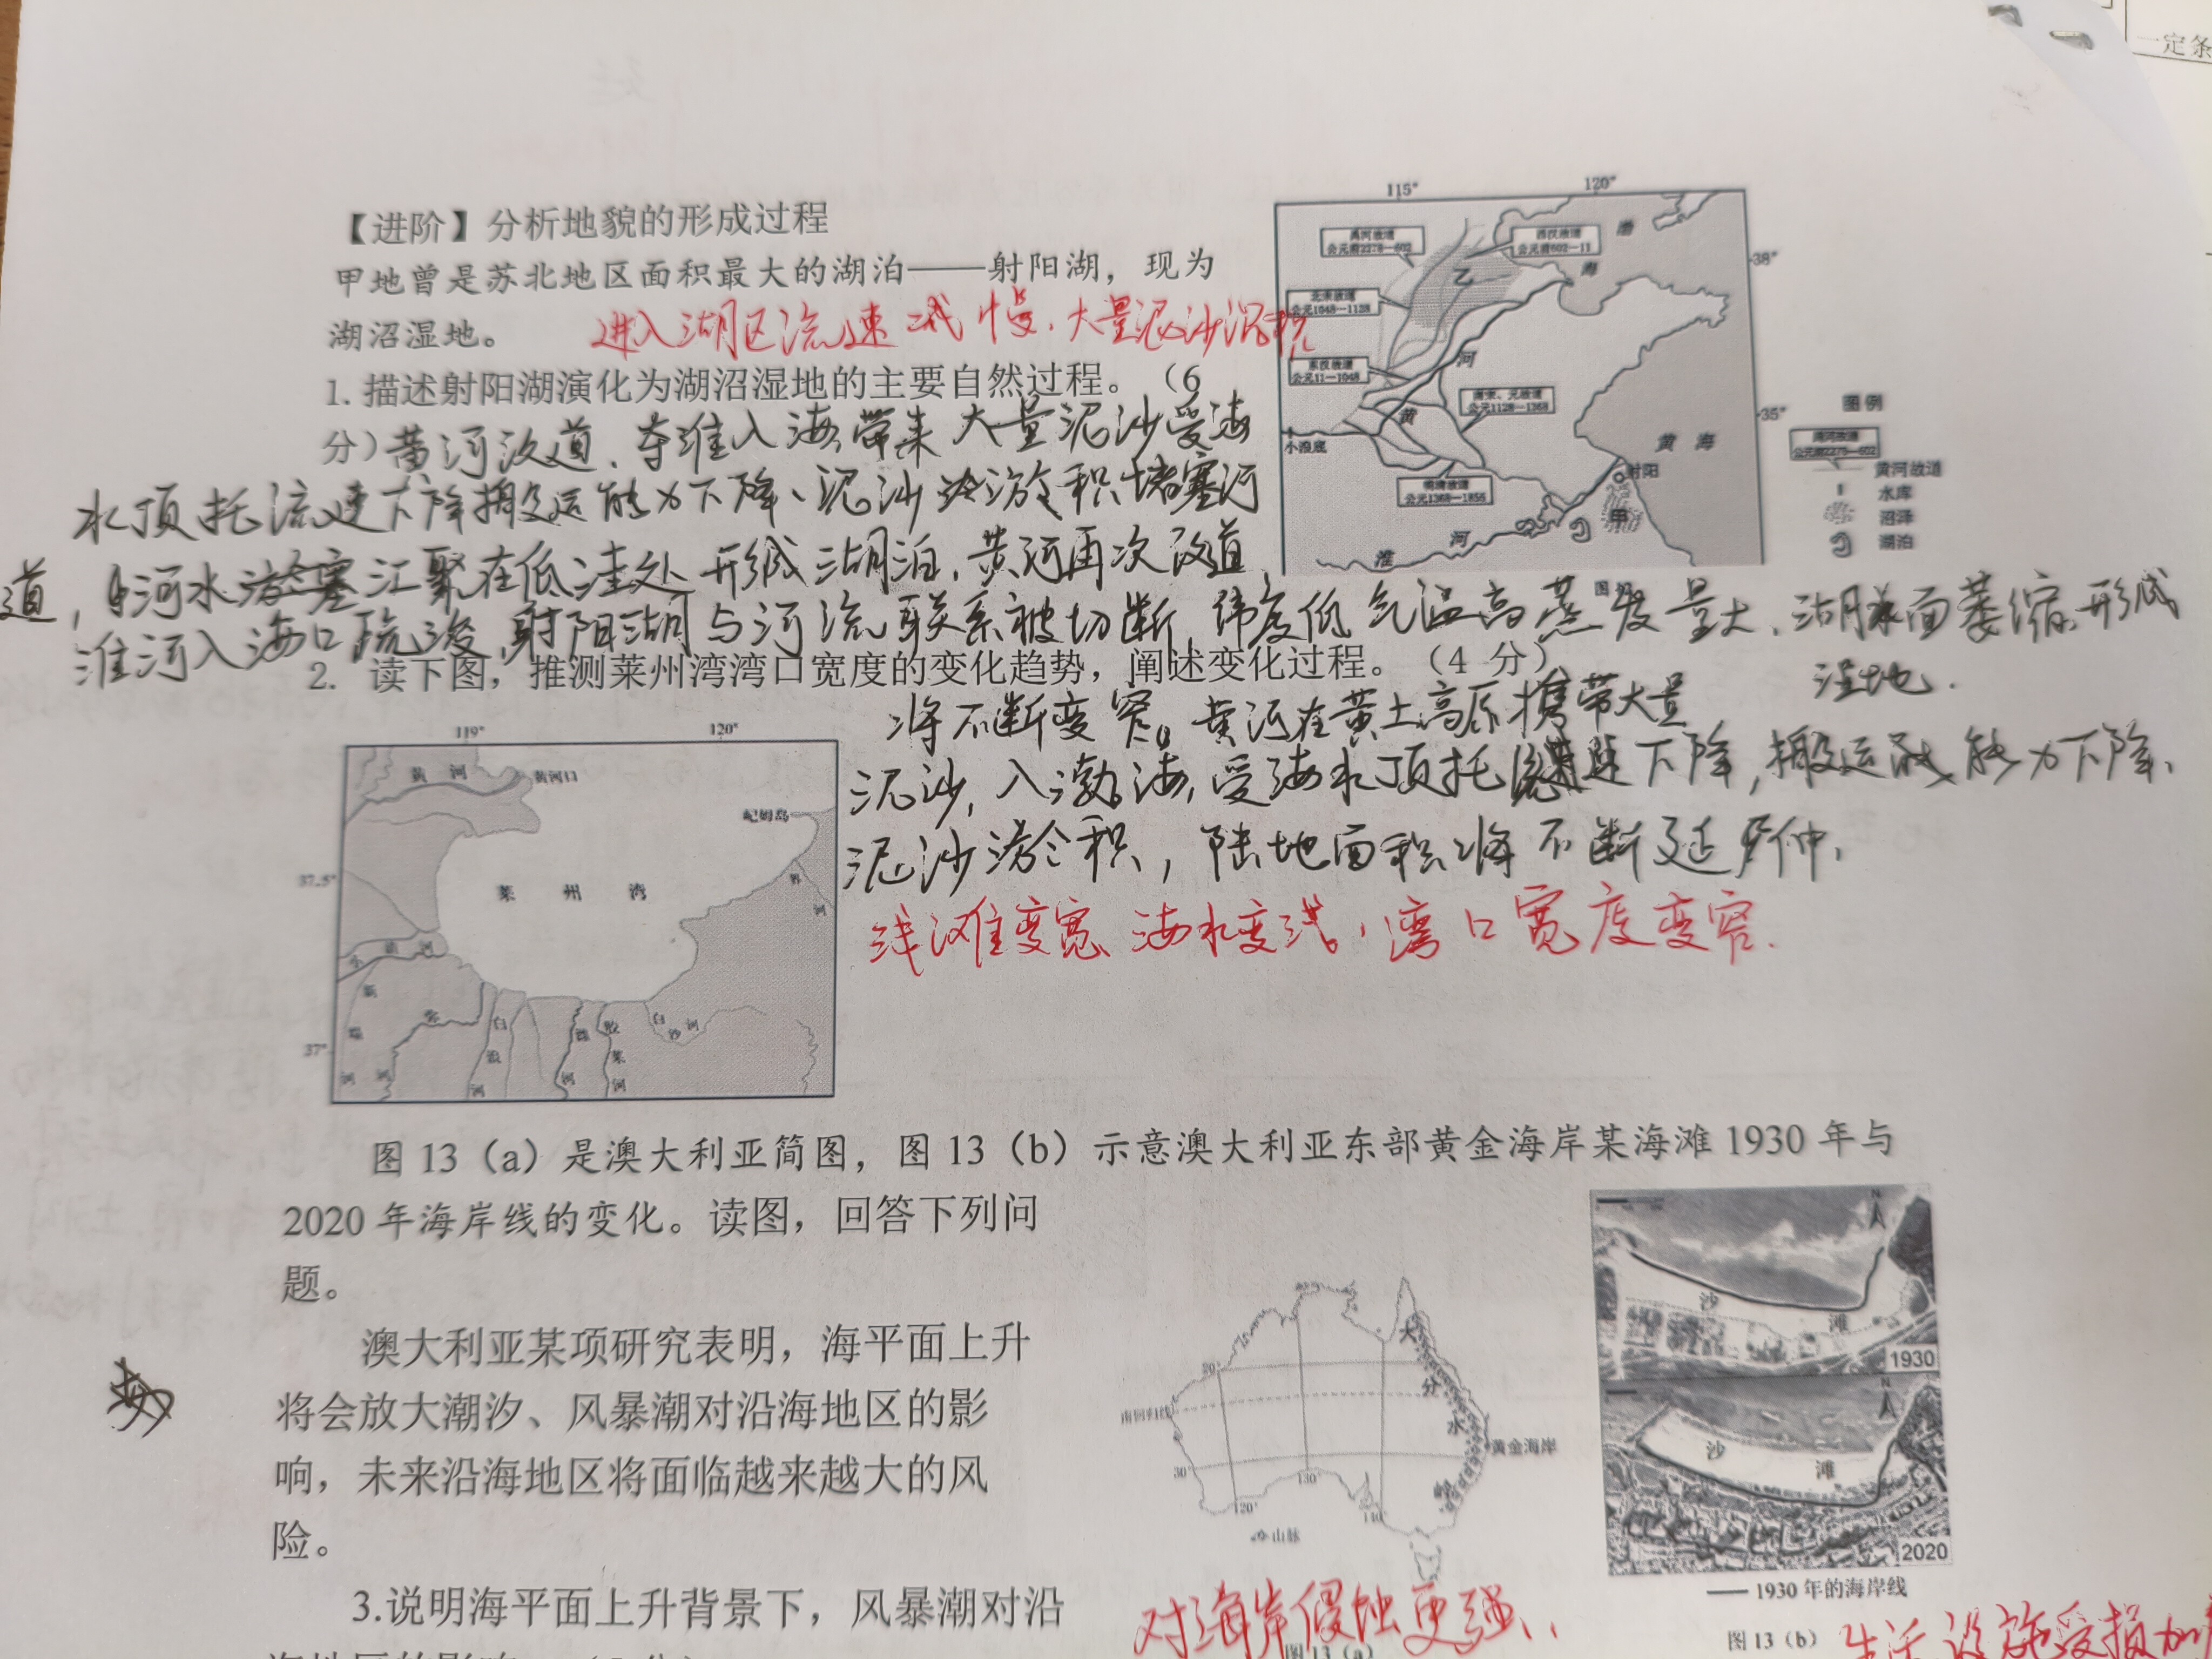 一定条
【进阶】分析地貌的形成过程
甲地曾是苏北地区面积最大的湖泊——射阳湖，现为
湖沼湿地。
进入湖区流速减慢，大量泥沙沉积
1. 描述射阳湖演化为湖沼湿地的主要自然过程。（6
分）
黄河改道、夺淮入海，带来大量泥沙受海
水顶托流速下降搬运能力下降、泥沙淤积堵塞河
道，河水汇聚在低洼处形成湖泊，黄河再次改道
淮河入海口疏浚，射阳湖与河流联系被切断，纬度低气温高蒸发量大、湖水面萎缩，形成
湿地.
115°
120°
38°
35°
禹河故道
公元前2278—602
西汉故道
公元前602—11
北宋故道
公元1048—1128
东汉故道
公元11—1048
南宋、元故道
公元1128—1368
明清故道
公元1368—1855
渤
海
乙
河
黄
小浪底
黄 海
射阳
甲
淮
河
图例
黄河故道
水库
沼泽
湖泊
2. 读下图，推测莱州湾湾口宽度的变化趋势，阐述变化过程。（4 分）
将不断变窄。黄河在黄土高原携带大量
泥沙，入渤海，受海水顶托流速下降，搬运能力下降、
泥沙淤积，陆地面积将不断延伸，
浅滩变宽、海水变浅，湾口宽度变窄.
119°
120°
黄 河
黄河口
屺姆岛
37.5°
莱 州 湾
界
河
小 清 河
37°
白
浪
河
潍
河
胶
莱
河
白
沙
河
图 13（a）是澳大利亚简图，图 13（b）示意澳大利亚东部黄金海岸某海滩 1930 年与
2020 年海岸线的变化。读图，回答下列问
题。
澳大利亚某项研究表明，海平面上升
将会放大潮汐、风暴潮对沿海地区的影
响，未来沿海地区将面临越来越大的风
险。
3.说明海平面上升背景下，风暴潮对沿
大
分
水
岭
20°
南回归线
30°
120°
130
140
黄金海岸
山脉
N
沙
滩
1930
N
沙
滩
2020
—— 1930 年的海岸线
对海岸侵蚀更强，
图 13（a）
图 13（b）
生活设施受损加